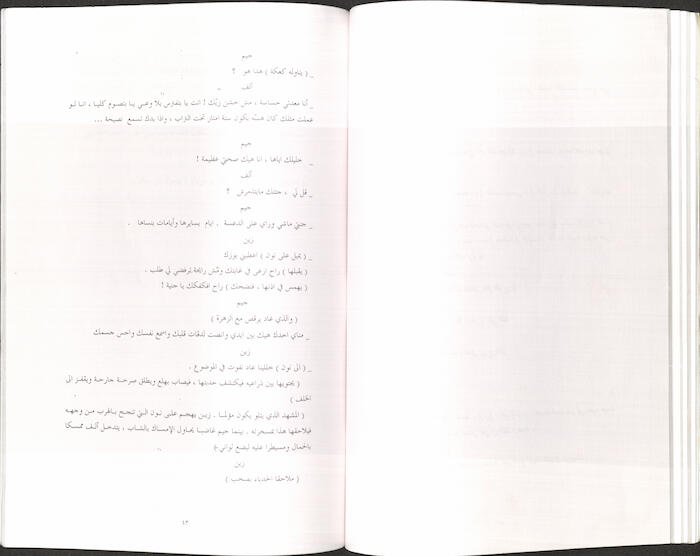 جيم
_ ( يناوله كعكة ) هذا هو ؟
ألف
_ أنا معدتي حساسة ، مش حنتن زيّك ! انت يا بتفترس بلا وعي يا بتصوم كليا ، انا لو
عملت مثلك كان هسّه بكون ستة امتار تحت التراب ، واذا بدك تسمع نصيحة ...
جيم
_ خليلك اياها ، انا هيك صحتي عظيمة !
ألف
_ قل لي ، جنتك مابتتحرش ؟
جيم
_ جنتي ماشي وراي على الدعسة . ايام بسايرها وأيامات بنساها .
زين
_ ( يميل على نون ) اعطيني بوزك
( يقبلها ) راح ارعى في غابتك ومّش رايحة ترفضي لي طلب .
( يهمس في اذنها ، فتضحك ) راح افكفكك يا جنية !
جيم
( والذي عاد يرقص مع الزهرة )
_ مناي اخدك هيك بين ايدي وانصت لدقات قلبك واسمع نفسك واحس جسمك
زين
_ ( الى نون ) خلينا عاد نفوت في الموضوع .
( يحتويها بين ذراعيه فيكتشف حدبتها ، فيصاب بهلع ويطلق صرخة جارحة ويقفز الى
الخلف )
( المشهد الذي يتلو يكون مؤلما . زين يهجم على نون التي تنجح بالهرب من وجهه
فيلاحقها هذا بمسخرته . بينما جيم غاضبا يحاول الإمساك بالشاب ، يتدخل ألف ممسكا
بالحمال ومسيطرا عليه لبضع ثواني )
زين
( ملاحقا الحدباء بصخب )
٤٣